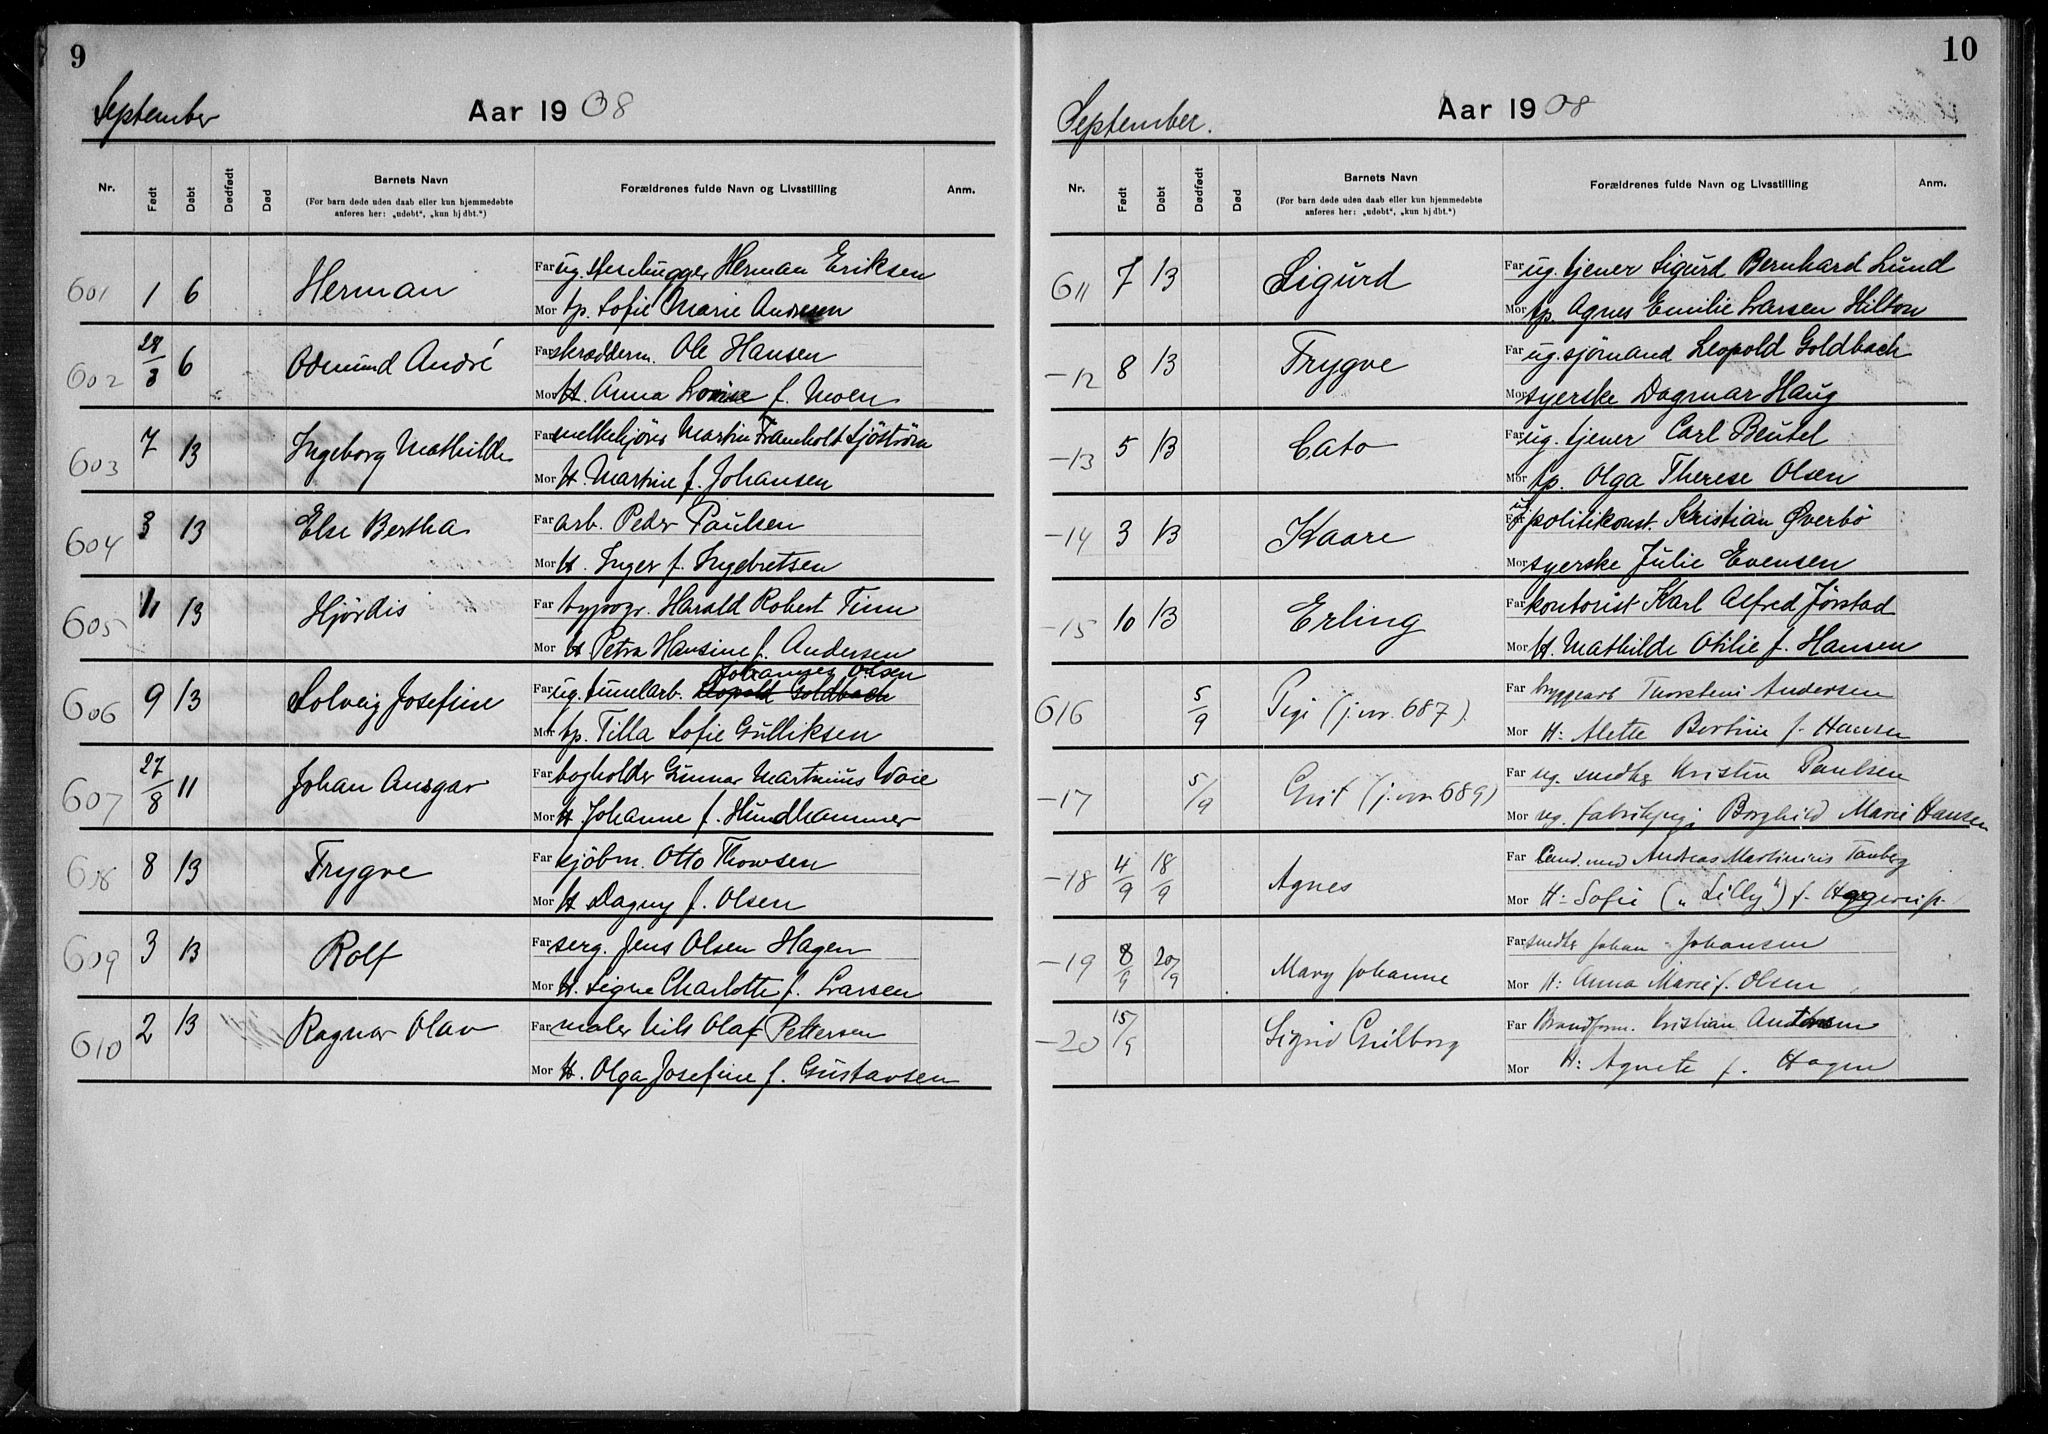 9
September Aar 1908
Nr. Født Døbt Dødfødt Død Barnets Navn Forældrenes fulde Navn og Livsstilling Anm.
(For barn døde uden daab eller kun hjemmedøbte
anføres her: „udøbt“, „kun hj dbt.“)
601 1 6 Herman Far ug. stenhugger Herman Eriksen
Mor tp. Sofie Marie Andresen
602 6 Odmund André Far skrædderm. Ole Hansen
Mor H. Anna Lovise f. Moen
603 7 13 Ingeborg Mathilde Far Martin Framholt Sjöström
Mor H. Martine f. Johansen
604 3 13 Else Bertha Far arb. Peder Paulsen
Mor H. Inger f. Ingebretsen
605 11 13 Hjördis Far typogr. Harald Robert
Mor H Petra Hansine f. Andersen
Johannes Olsen
606 9 13 Solveig Josefine Far ug. tunelarb. Leopold Goldbach
Mor tp. Tilla Sofie Gulliksen
607 27/8 11 Johan Ansgar Far bogholder Gunnar Martinius Waie
Mor H Johanne f. Hundhammer
608 8 13 Trygve Far sjöbm. Otto Thowsen
Mor H Dagny f. Olsen
609 3 13 Rolf Far serg. Jens Olsen Hagen
Mor H. Signe Charlotte f. Larsen
610 2 13 Ragnar Olav Far maler Nils Olaf Pettersen
Mor H. Olga Josefine f. Gustavsen
10
September. Aar 1908
Nr. Født Døbt Dødfødt Død Barnets Navn Forældrenes fulde Navn og Livsstilling Anm.
(For barn døde uden daab eller kun hjemmedøbte
anføres her: „udøbt“, „kun hj dbt.“)
611 7 13 Sigurd Far ug. tjener Sigurd Bernhard Lund
Mor tp. Agnes Emilie Larsen Hilton
-12 8 13 Trygve Far ug. sjömand Leopold Goldbach
Mor syerske Dagmar Haug
-13 5 13 Cato Far ug. tjener Carl Beutel
Mor tp. Olga Therese Olsen
-14 3 13 Kaare Far ug politikonst. Kristian Øverbö
Mor syerske Julie Evensen
-15 10 13 Erling Far kontorist Karl Alfred Jørstad
Mor H. Mathilde Otilie f. Hansen
616 5/9 Pigi (j. nr. 687). Far bryggearb Andersen
Mor H: Alette Bertine f. Hansen
-17 5/9 (j. nr 689) Far ug. snedker Paulsen
Mor ug. fabrikpigi Borghild Marie Hansen
-18 4/9 18/9 Agnes Far Cand. med Andreas Martinius Tanberg
Mor H: Sofie („Lilly“) f. Heyerup.
-19 8/9 20/9 Mary Johanne Far snedker Johan Johansen
Mor H: Anna Marie f. Olsen
-20 15/9 Sigrid Gulborg Far Brandform. Kristian Andersen
Mor H: Agnete f. Hagen